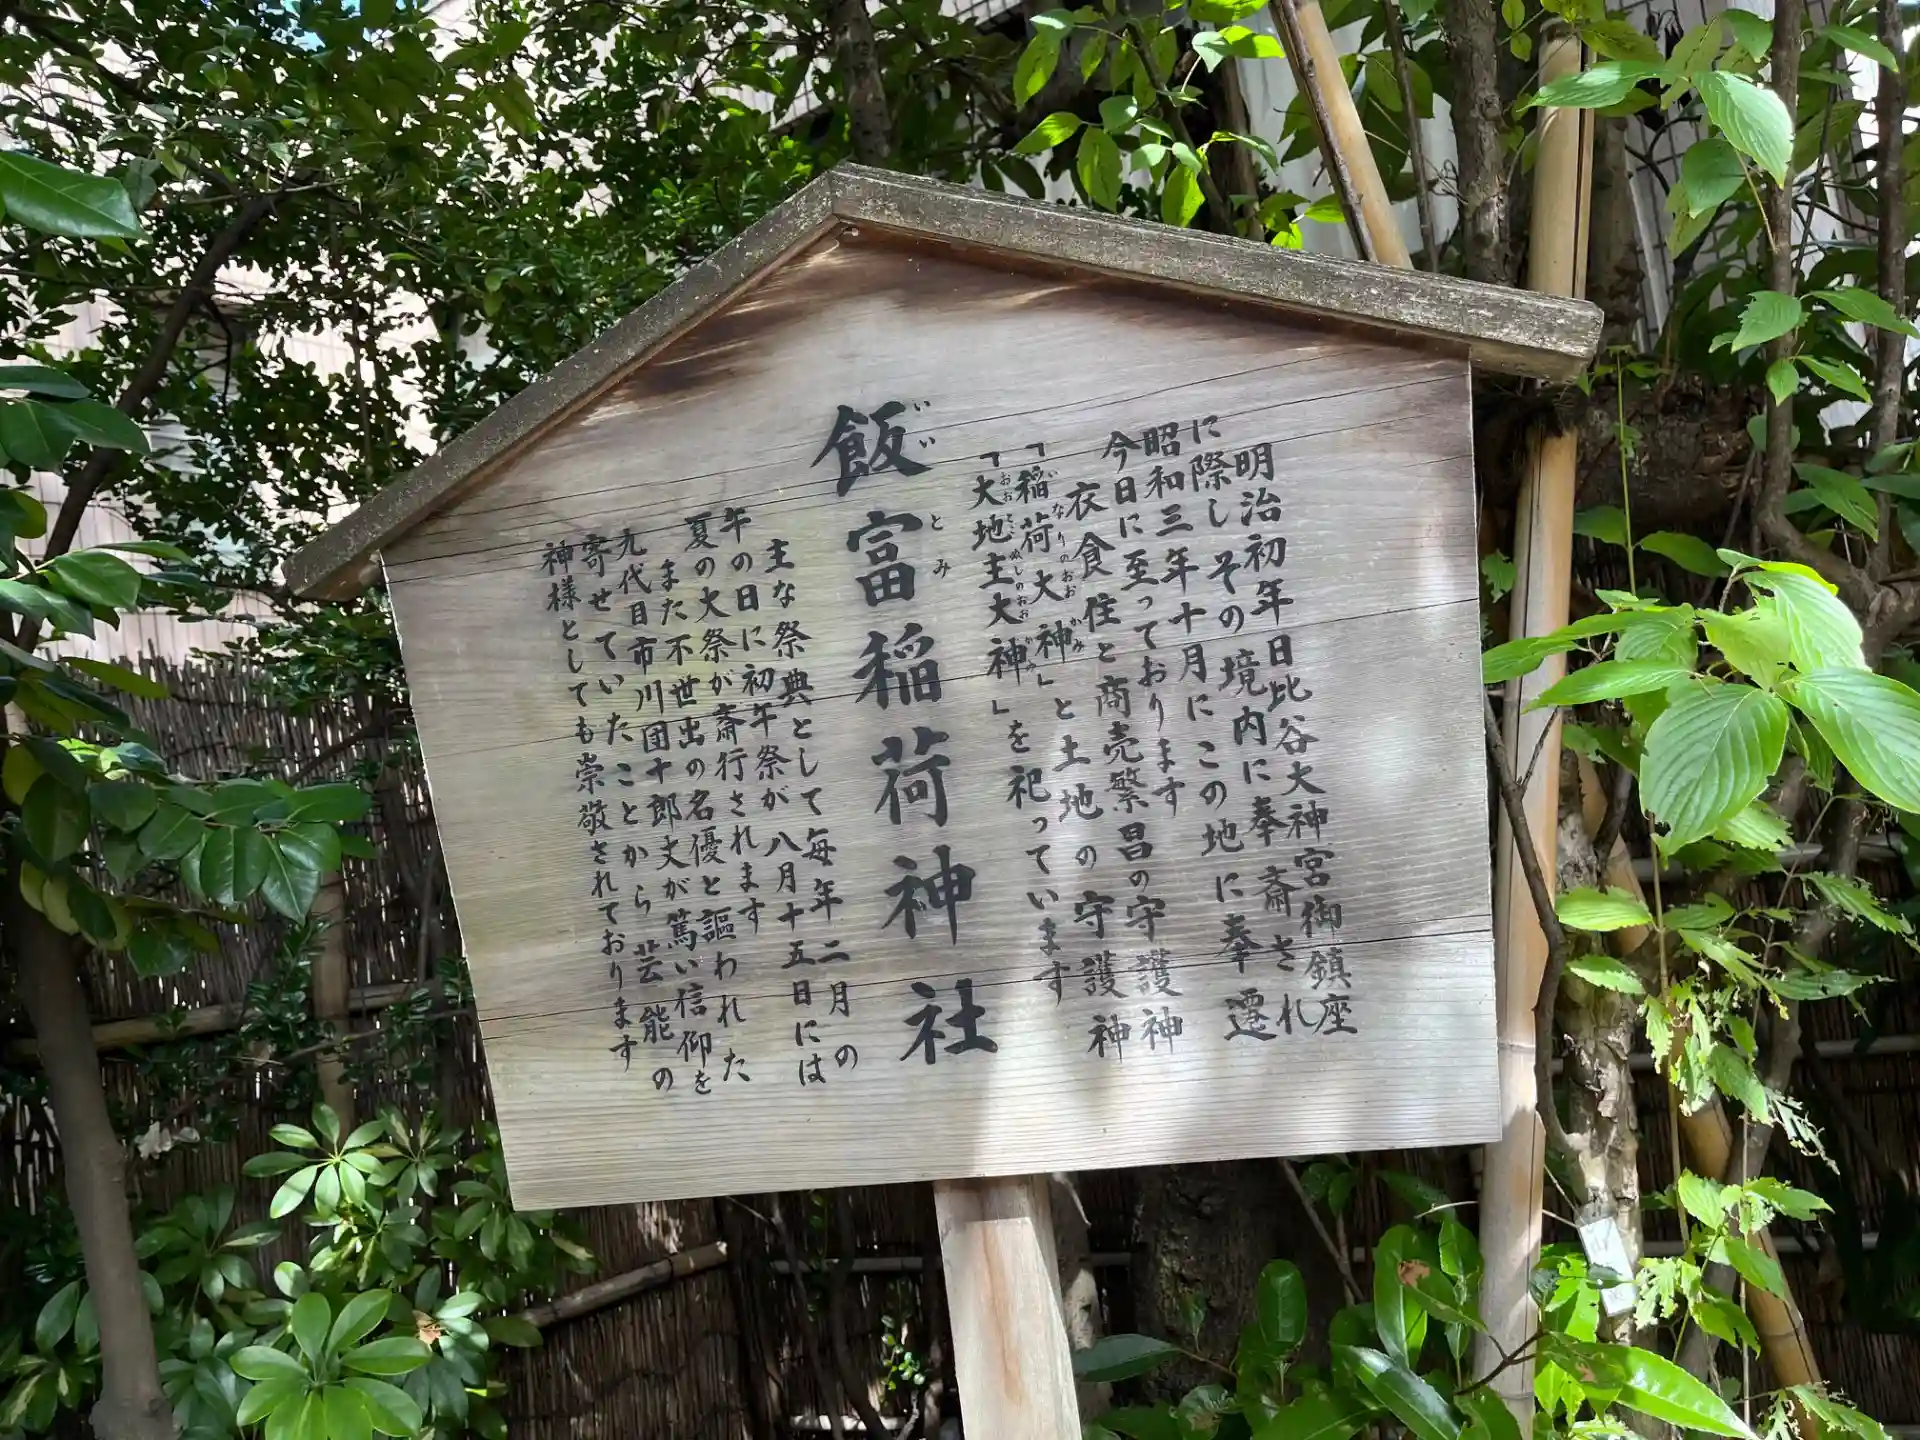 明治初年日比谷大神宮御鎮座
に際しその境内に奉斎され
昭和三年十月にこの地に奉遷
今日に至っております
衣食住と商売繁昌の守護神
いなりのおおかみ
「稲荷大神」と土地の守護神
おおとこぬしのおおかみ
「大地主大神」を祀っています
いいとみ
飯富稲荷神社
主な祭典として毎年二月の
午の日に初午祭が八月十五日には
夏の大祭が斎行されます
また不世出の名優と謳われた
九代目市川団十郎丈が篤い信仰を
寄せていたことから芸能の
神様としても崇敬されております